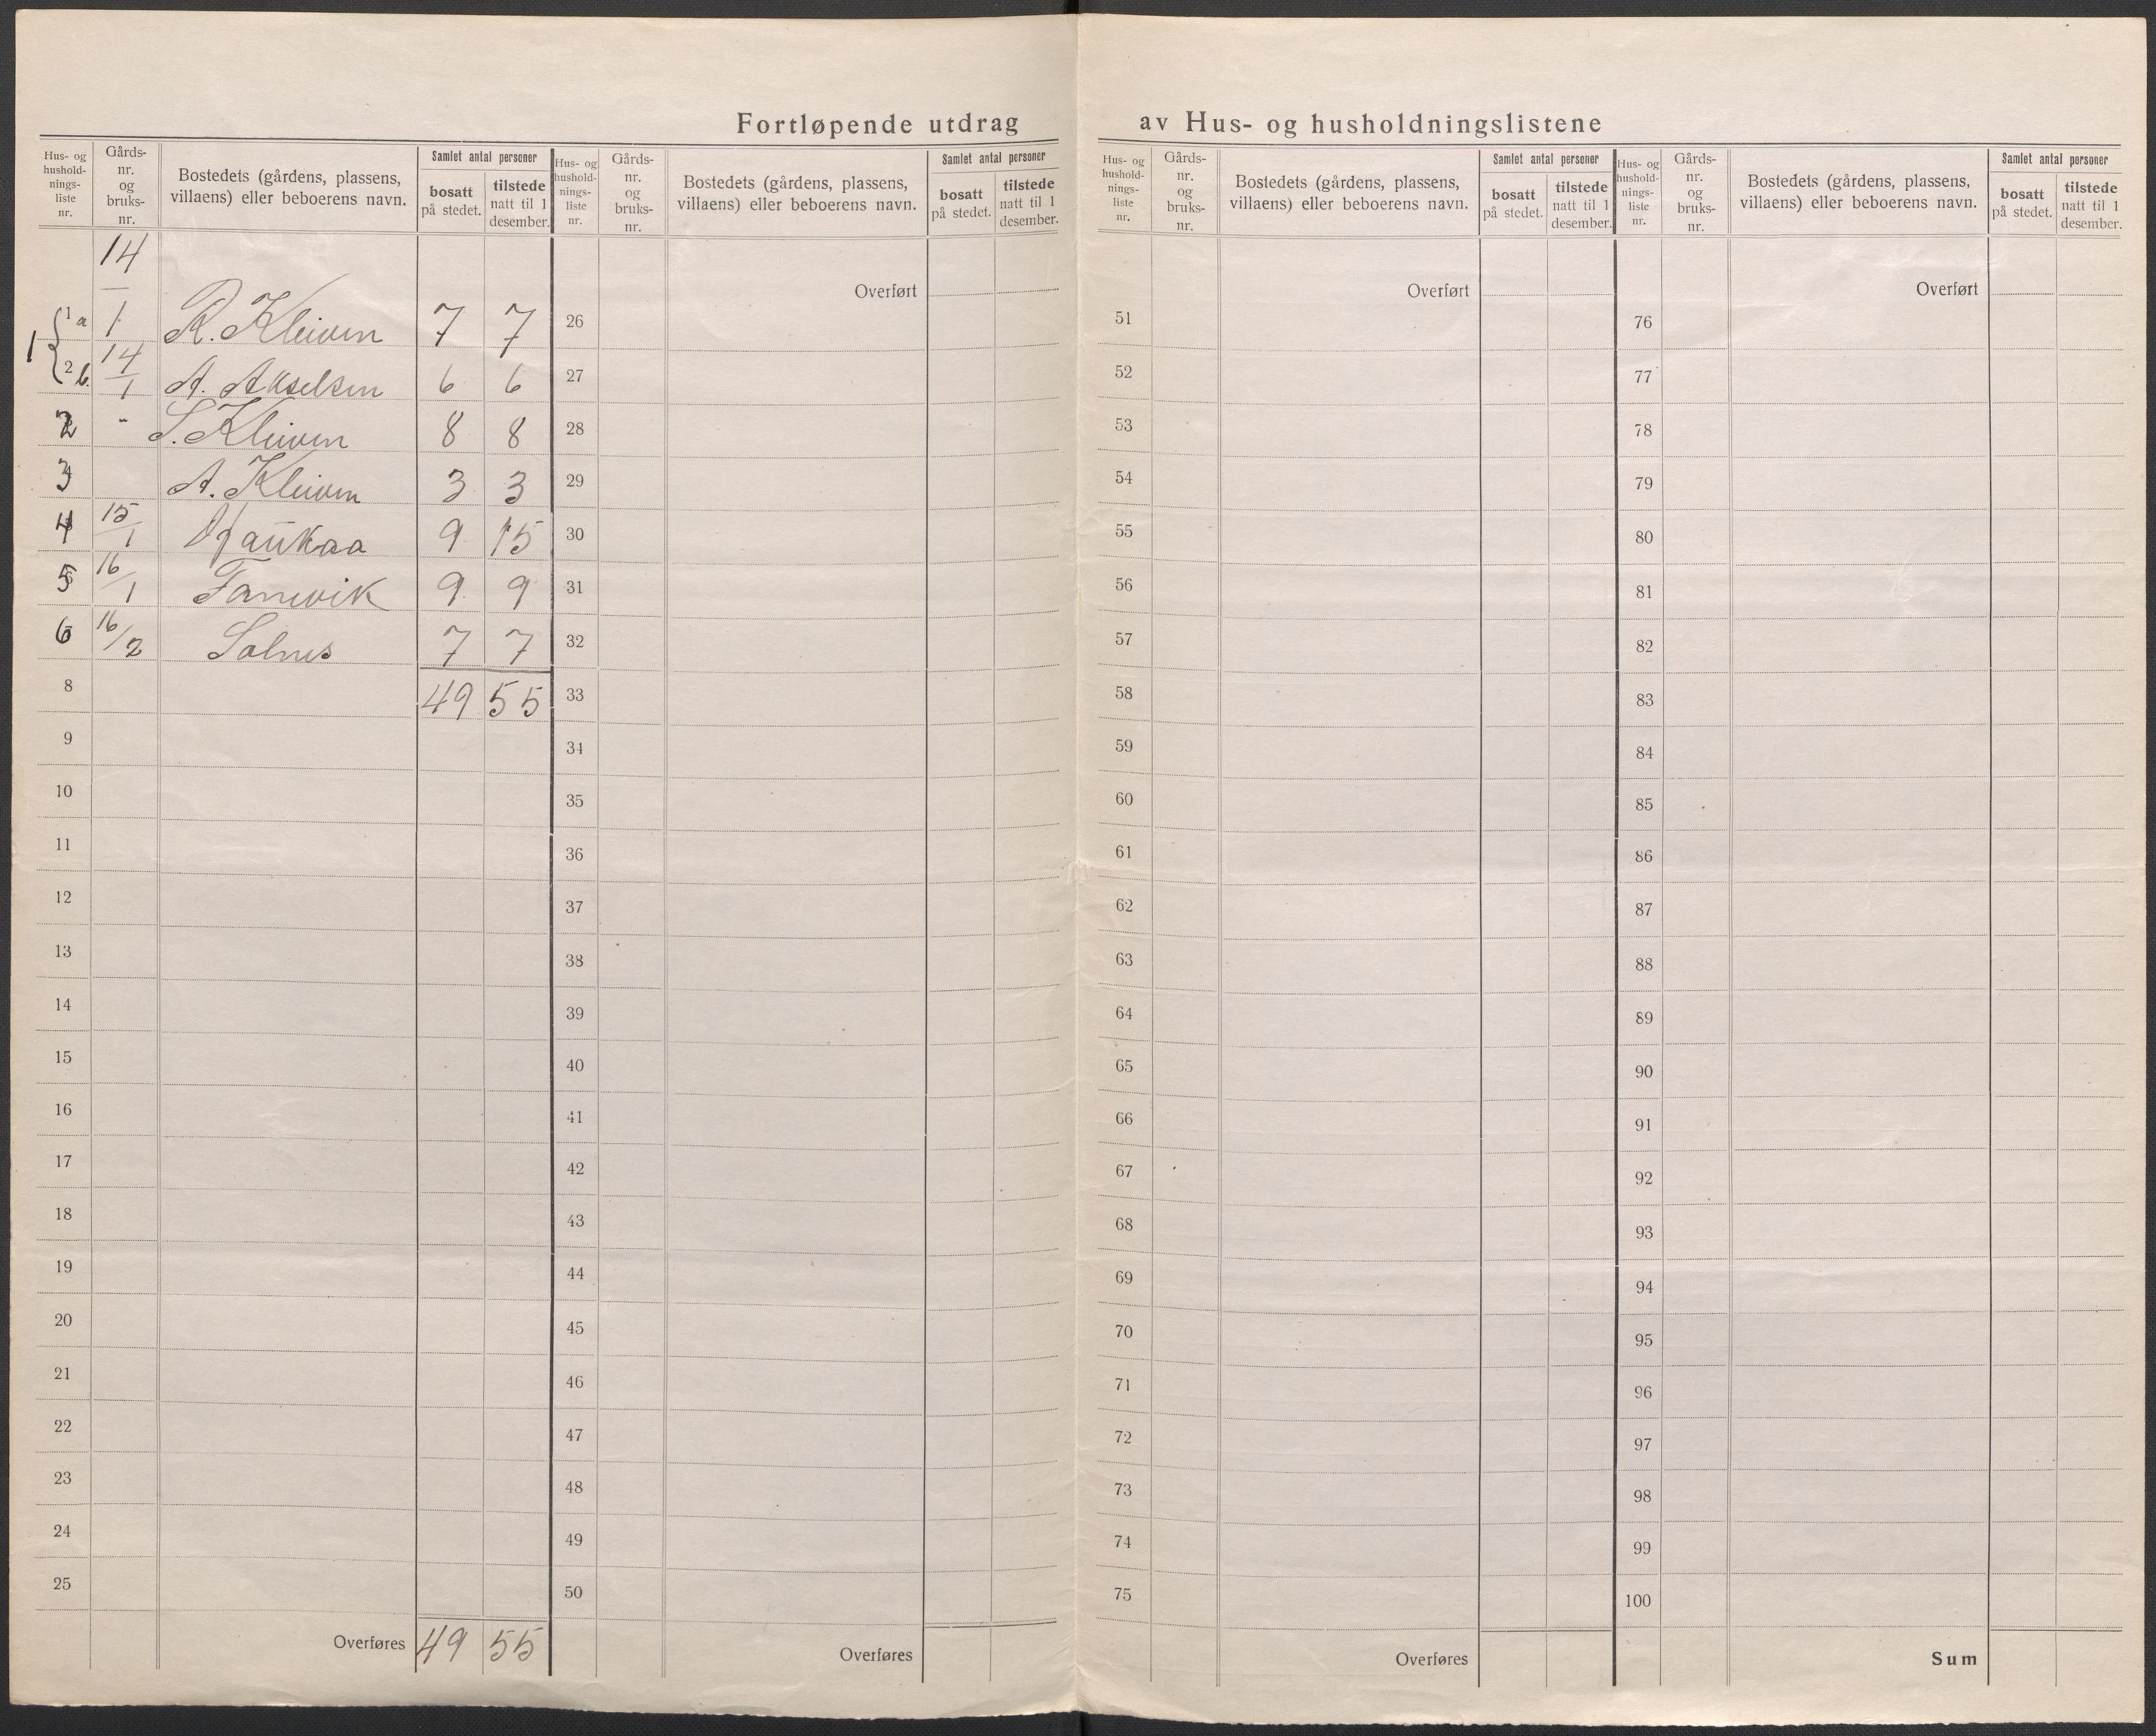 Fortløpende utdrag av Hus- og husholdningslistene
Hus- og hushold- nings- liste nr. | Gårds- nr. og bruks- nr. | Bostedets (gårdens, plassens, villaens) eller beboerens navn. | Samlet antal personer | bosatt på stedet. | tilstede natt til 1 desember.
14
1 { 1 a | 1 | R. Kleiven | 7 | 7
2 b. | 14/1 | A. Akselsen | 6 | 6
2 | - | S. Kleiven | 8 | 8
3 | A. Kleiven | 3 | 3
4 | 15/1 | Haukaa | 9 | 15
5 | 16/1 | Fanevik | 9 | 9
6 | 16/2 | Solnes | 7 | 7
8 | 49 | 55
9
10
11
12
13
14
15
16
17
18
19
20
21
22
23
24
25
Overføres 49 | 55
Hus- og hushold- nings- liste nr. | Gårds- nr. og bruks- nr. | Bostedets (gårdens, plassens, villaens) eller beboerens navn. | Samlet antal personer | bosatt på stedet. | tilstede natt til 1 desember.
Overført
26
27
28
29
30
31
32
33
34
35
36
37
38
39
40
41
42
43
44
45
46
47
48
49
50
Overføres
Hus- og hushold- nings- liste nr. | Gårds- nr. og bruks- nr. | Bostedets (gårdens, plassens, villaens) eller beboerens navn. | Samlet antal personer | bosatt på stedet. | tilstede natt til 1 desember.
Overført
51
52
53
54
55
56
57
58
59
60
61
62
63
64
65
66
67
68
69
70
71
72
73
74
75
Overføres
Hus- og hushold- nings- liste nr. | Gårds- nr. og bruks- nr. | Bostedets (gårdens, plassens, villaens) eller beboerens navn. | Samlet antal personer | bosatt på stedet. | tilstede natt til 1 desember.
Overført
76
77
78
79
80
81
82
83
84
85
86
87
88
89
90
91
92
93
94
95
96
97
98
99
100
Sum